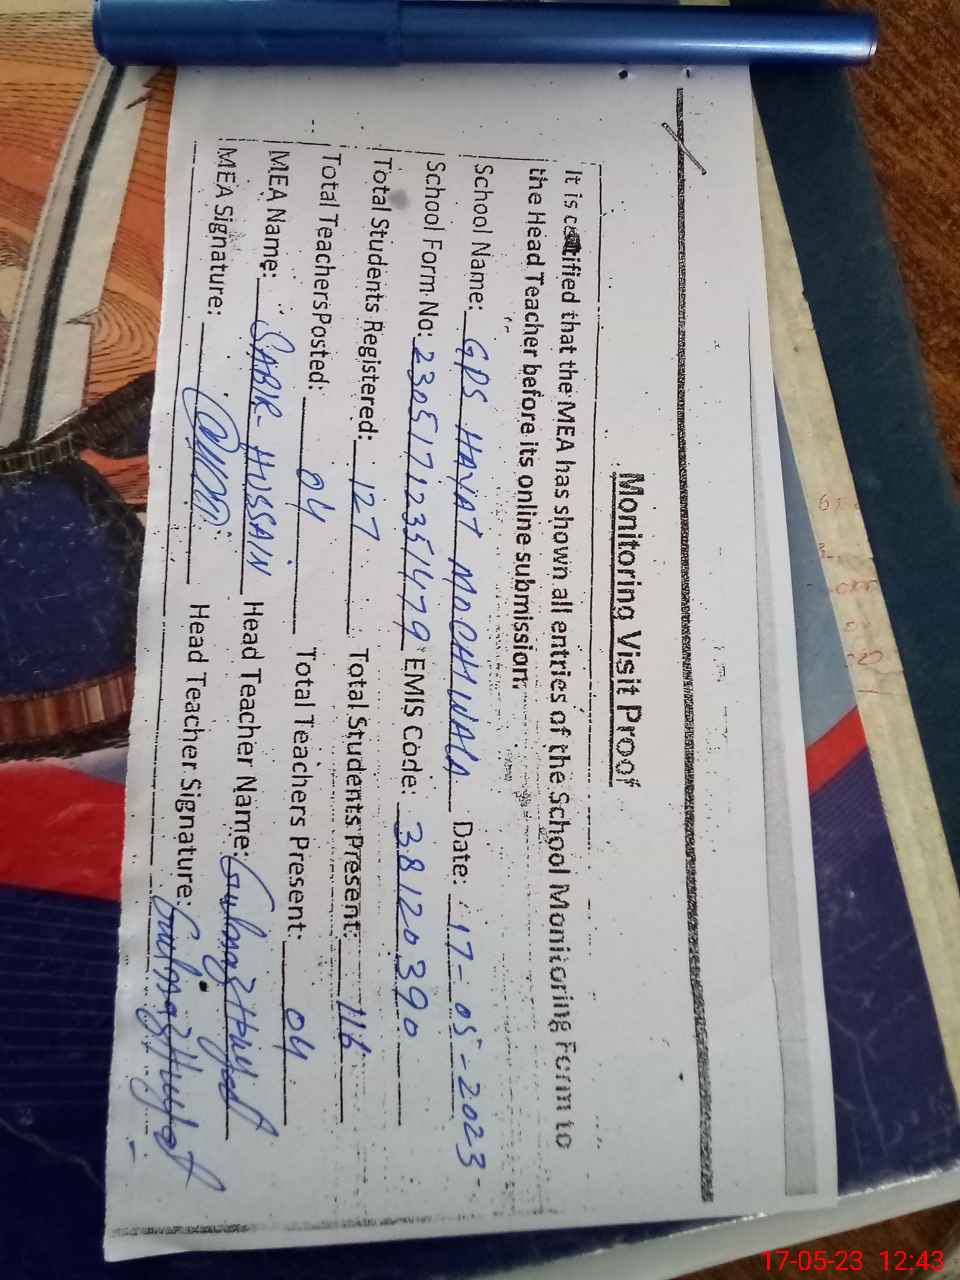 Monitoring Visit Proof
It is certified that the MEA has shown all entries of the School Monitoring Form to
the Head Teacher before its online submission.
School Name: GPS HAYAT MOCHIWALA Date: 17-05-2023
School Form No: 23051712351479 EMIS Code: 38120390
Total Students Registered: 127 Total Students Present: 116
Total Teachers Posted: 04 Total Teachers Present: 04
MEA Name: SABIR HUSSAIN Head Teacher Name:
MEA Signature: Head Teacher Signature:
17-05-23 12:43